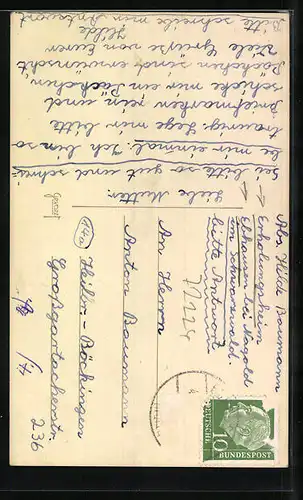 Liebe Mutter.
Sei bitte so gut und schrei-
be mir einmal. Ich bin so
traurig. Lege mir bitte
Briefmarken rein und
schicke mir ein Päckchen
Päckchen sind erwünscht
Viele Grüße von Eurer
Hilde
Bitte schreibe mir Antwort
Abs. Hilde Baumann
Erholungsheim
Elshausen bei Nagold
im Schwarzwald.
bitte Antwort
An Herrn
Anton Baumann
(14a) Heilbr.-Böckingen
Großgartacherstr.
236
10
DEUTSCHE
BUNDESPOST